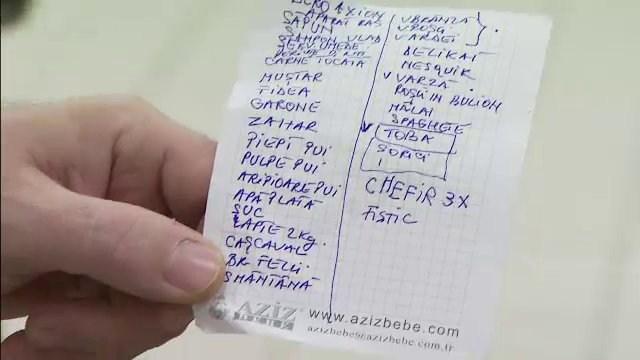 AXION
APARAT RAS
SAPUN
STAMPON VLAD
SERV. UMEDE
CARNE TOCATA
MUȘTAR
TIDEA
GARONE
ZAHAR
PIEPT PUI
PULPE PUI
ARIPIOARE PUI
APĂ PLATĂ
SUC
LAPTE 2Kg.
CAȘCAVAL
BR. FELII.
SMÂNTÂNĂ
V BRANZA
V ROSII
V ARDEI
DELIKAT
NESQUIK
V VARZĂ
ROȘII IN BULION
MĂLAI
SPAGHETE
TOBA
SORICI
CHEFIR 3X
FISTIC
AZIZ
BEBE
www.azizbebe.com
azizbebe@azizbebe.com.tr